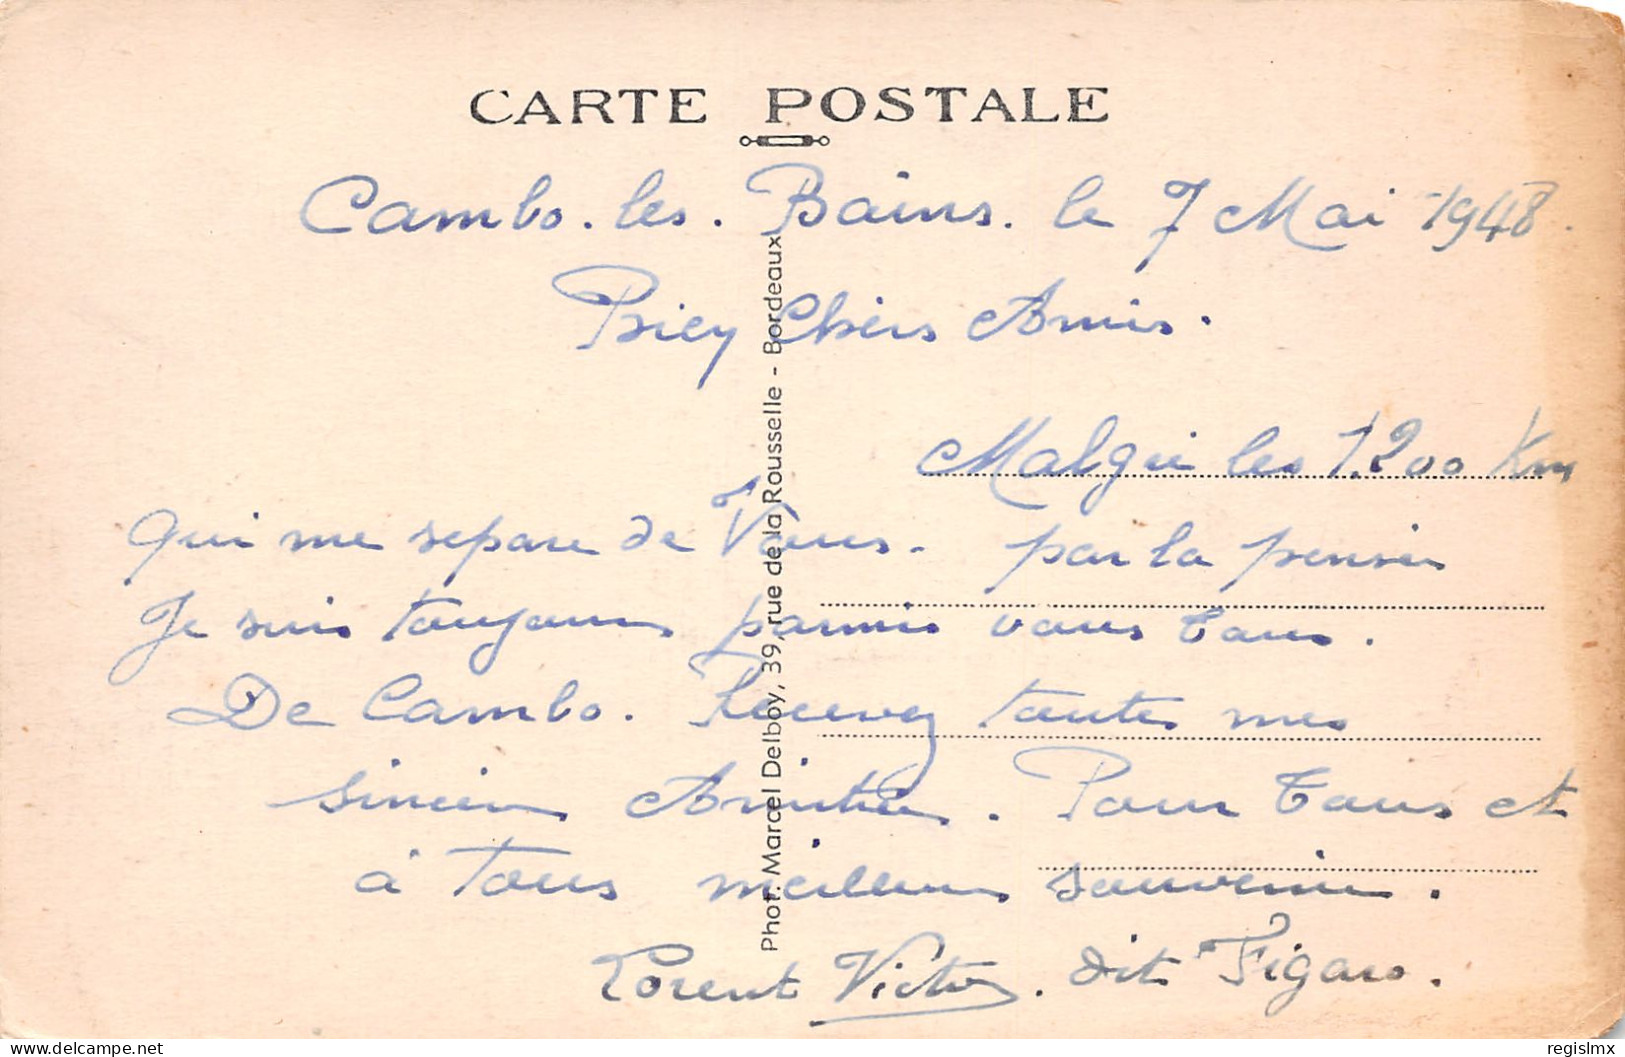 CARTE POSTALE
Cambo. les. Bains. le 7 Mai 1948.
Bien Chers Amis.
Malgré les 1.200 Km
qui me separe de Vous. par la pensée
Je suis toujours parmis vous tous.
De Cambo. Recevez toutes mes
sincères Amitiés. Pour tous et
à tous meilleurs souvenirs.
Lorent Victor. dit Figaro.
Phot. Marcel Delboy, 39, rue de la Rousselle - Bordeaux
delcampe.net
regislmx